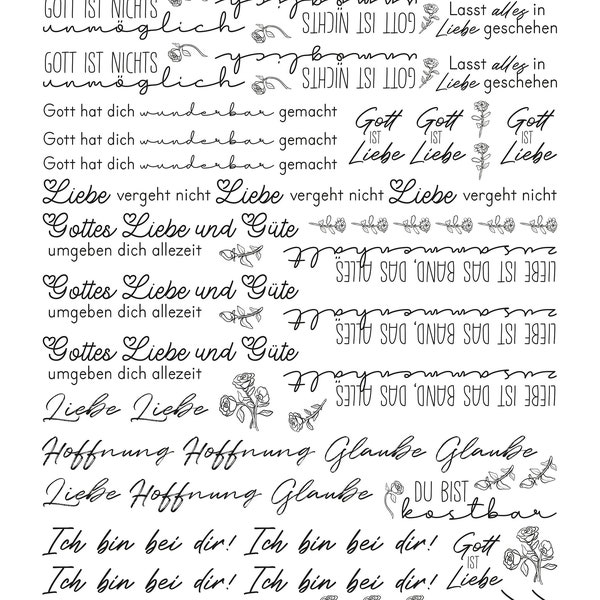 GOTT IST NICHTS
unmöglich
GOTT IST NICHTS
unmöglich
Lasst alles in
Liebe geschehen
GOTT IST NICHTS
unmöglich
GOTT IST NICHTS
unmöglich
Lasst alles in
Liebe geschehen
Gott hat dich wunderbar gemacht
Gott hat dich wunderbar gemacht
Gott hat dich wunderbar gemacht
Gott
IST
Liebe
Gott
IST
Liebe
Gott
IST
Liebe
Liebe vergeht nicht Liebe vergeht nicht Liebe vergeht nicht
Gottes Liebe und Güte
umgeben dich allezeit
LIEBE IST DAS BAND, DAS ALLES
zusammenhält
Gottes Liebe und Güte
umgeben dich allezeit
LIEBE IST DAS BAND, DAS ALLES
zusammenhält
Gottes Liebe und Güte
umgeben dich allezeit
LIEBE IST DAS BAND, DAS ALLES
zusammenhält
Liebe Liebe
Hoffnung Hoffnung Glaube Glaube
Liebe Hoffnung Glaube
DU BIST
kostbar
Ich bin bei dir! Ich bin bei dir!
Ich bin bei dir! Ich bin bei dir!
Gott
IST
Liebe